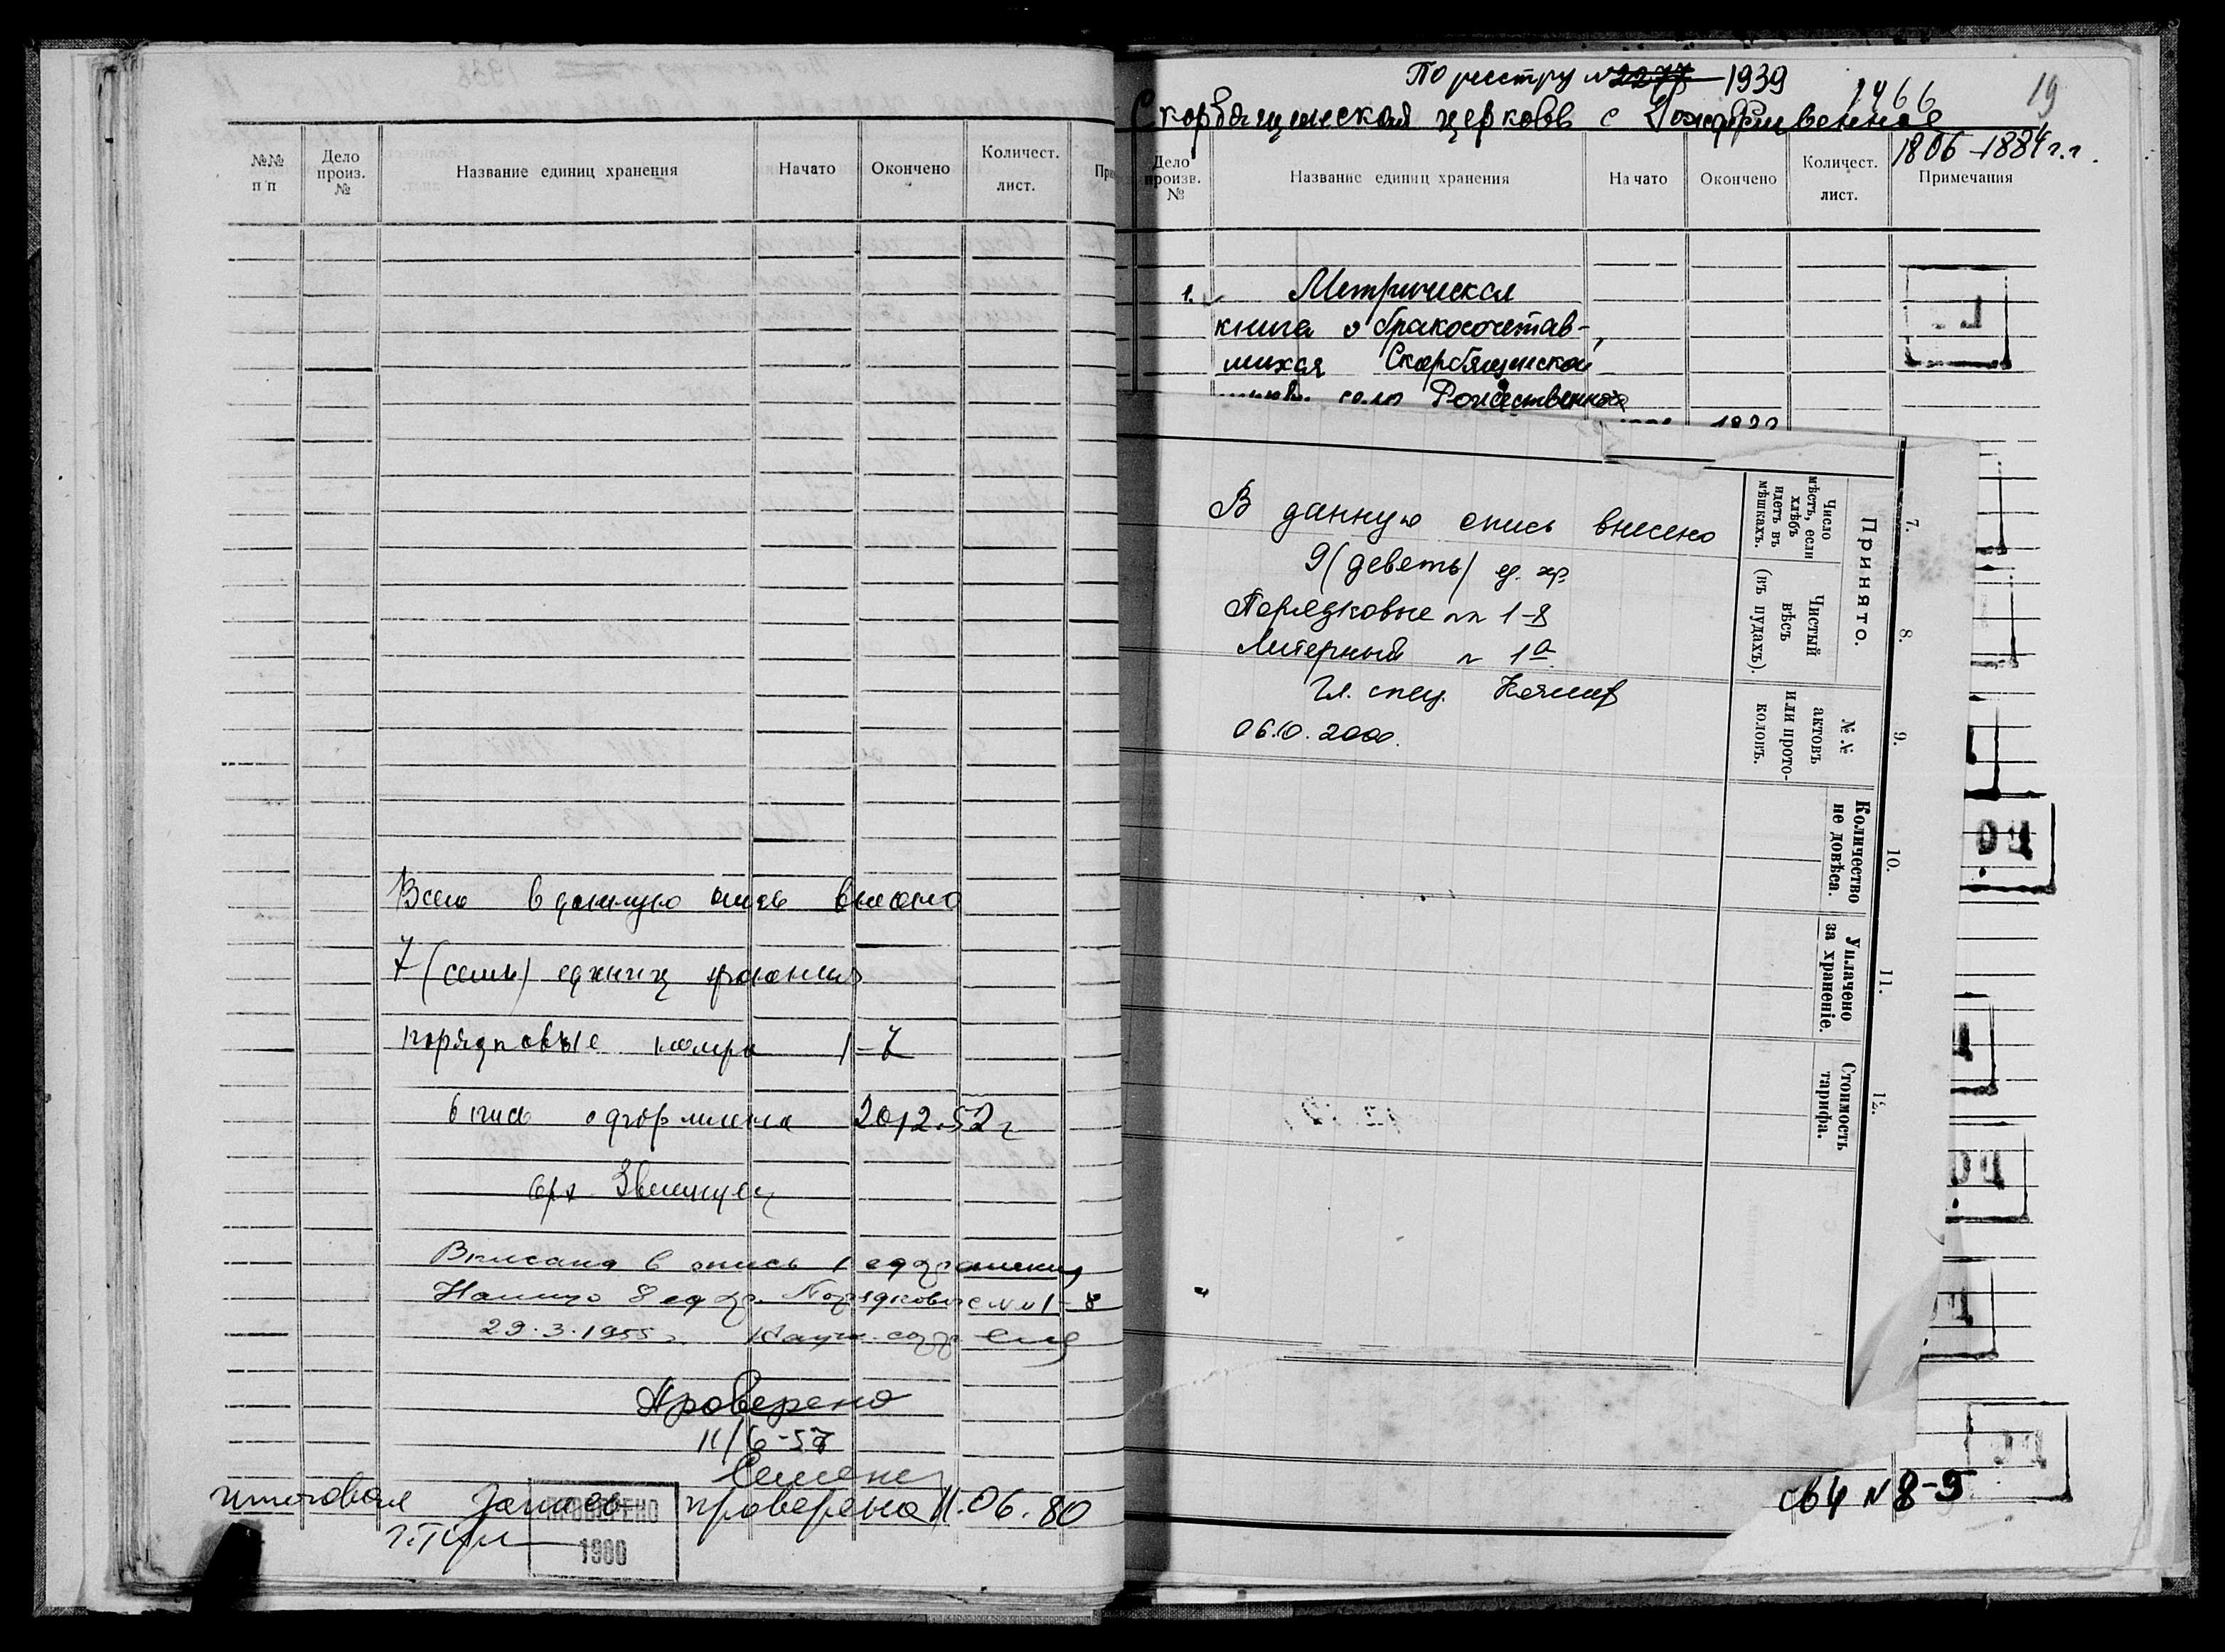 №№ п/п
Дело произ. №
Название единиц хранения
Начато
Окончено
Количест. лист.
При
Всего в данную опись внесено
7 (семь) единиц хранения
порядковые номера 1–7
опись оформлена 20/12.52 г
арх.
Вписана в опись 1 ед хранения
8 ед хр. Порядковые №№ 1–8
29.3.1955 г. Науч. сотр.
Проверено
11/6-57
итоговая запись проверена 11.06.80
ПРОВЕРЕНО
1980
По реестру № 2277 1939
1466
19
Скорбященская церковь с Рождественное
1806–1884 г.г.
Дело произв. №
Название единиц хранения
Начато
Окончено
Количест. лист.
Примечания
1. Метрическая
книга о бракосочетав-
шихся Скорбященской
села Рождественное
В данную опись внесено
9 (девять) ед. хр.
Порядковые №№ 1–8
Литерный № 1а
Гл. спец.
06.10.2000.
7.
8.
9.
10.
11.
12.
Принято.
Число мѣстъ, если хлѣбъ идетъ въ мѣшкахъ.
Чистый вѣсъ (въ пудахъ).
№ № актовъ или прото-
коловъ.
Количество не довѣса.
Уплачено за храненіе.
Стоимость тарифа.
св 4 № 8-9